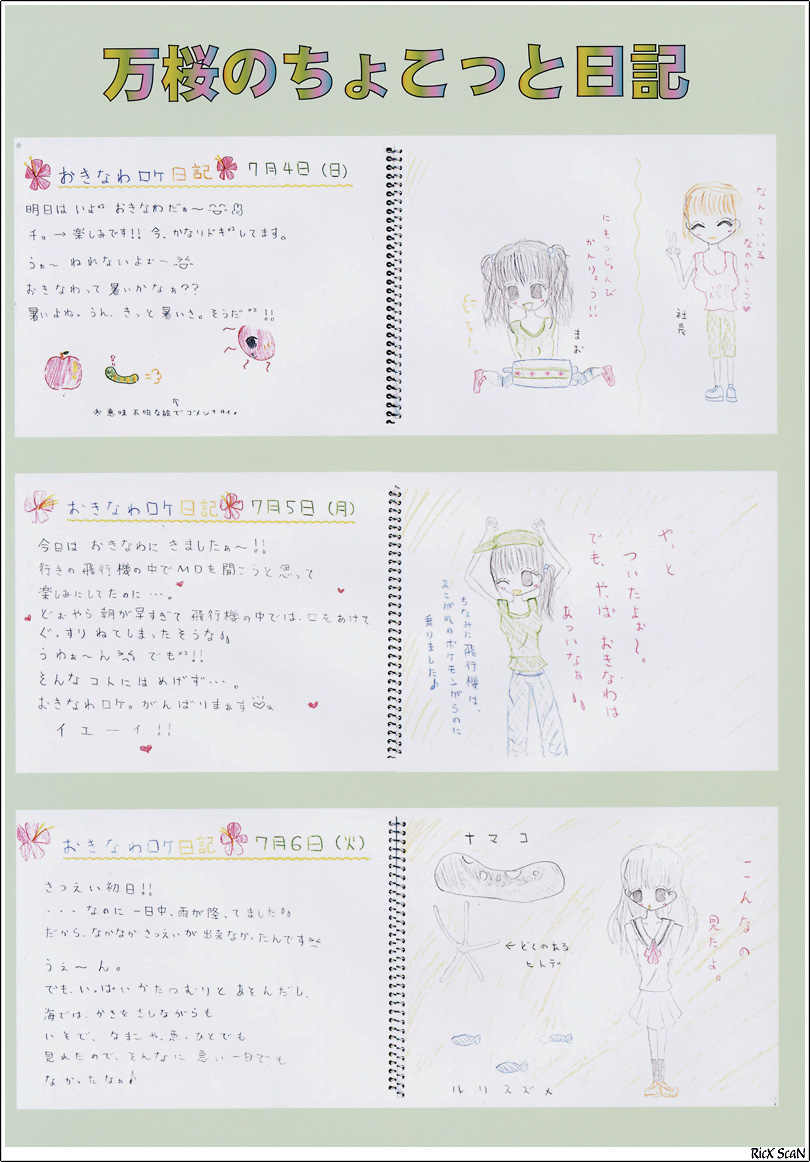 万桜のちょこっと日記
おきなわロケ日記 7月4日(日)
明日は いよ"2 おきなわだぁ〜
チョー楽しみです!! 今、かなりドキ"2してます。
うぁ〜 ねれないよぉ〜
おきなわって 暑いかなぁ??
暑いよね。うん。きっと暑いさ。そうだ"2!!
※意味不明な絵でゴメンナサイ。
にもつじゅんび
かんりょう!!
まお
なんていい子
なのかしら
社長
おきなわロケ日記 7月5日(月)
今日は おきなわに きましたぁ〜!!
行きの 飛行機の中でMDを聞こうと思って
楽しみにしてたのに・・・。
どぉやら 朝が早すぎて 飛行機の中では、口をあけて
ぐっすり ねてしまったそうな♪
うわぁ〜ん でも"2!!
そんなコトには めげず・・・。
おきなわロケ。がんばりまぁす
イエーイ!!
やっと
ついたよぉ〜。
でも、やっぱ おきなわは
あついなぁ♪
ちなみに飛行機は、
あこがれのポケモンがらのに
乗りました♪
おきなわロケ日記 7月6日(火)
さつえい初日!!
・・・なのに 一日中、雨が降ってました♪
だから、なかなか さつえいが出来なかったんです
うぇ〜ん。
でも、いっぱい かたつむりと あそんだし、
海では、かさを さしながらも
いそで、なまこや、魚、ひとでも
見れたので、そんなに 悪い一日でも
なかったなぁ♪
ナマコ
←どくのある
ヒトデ
ルリスズメ
こんなの
見たよ。
RicX ScaN